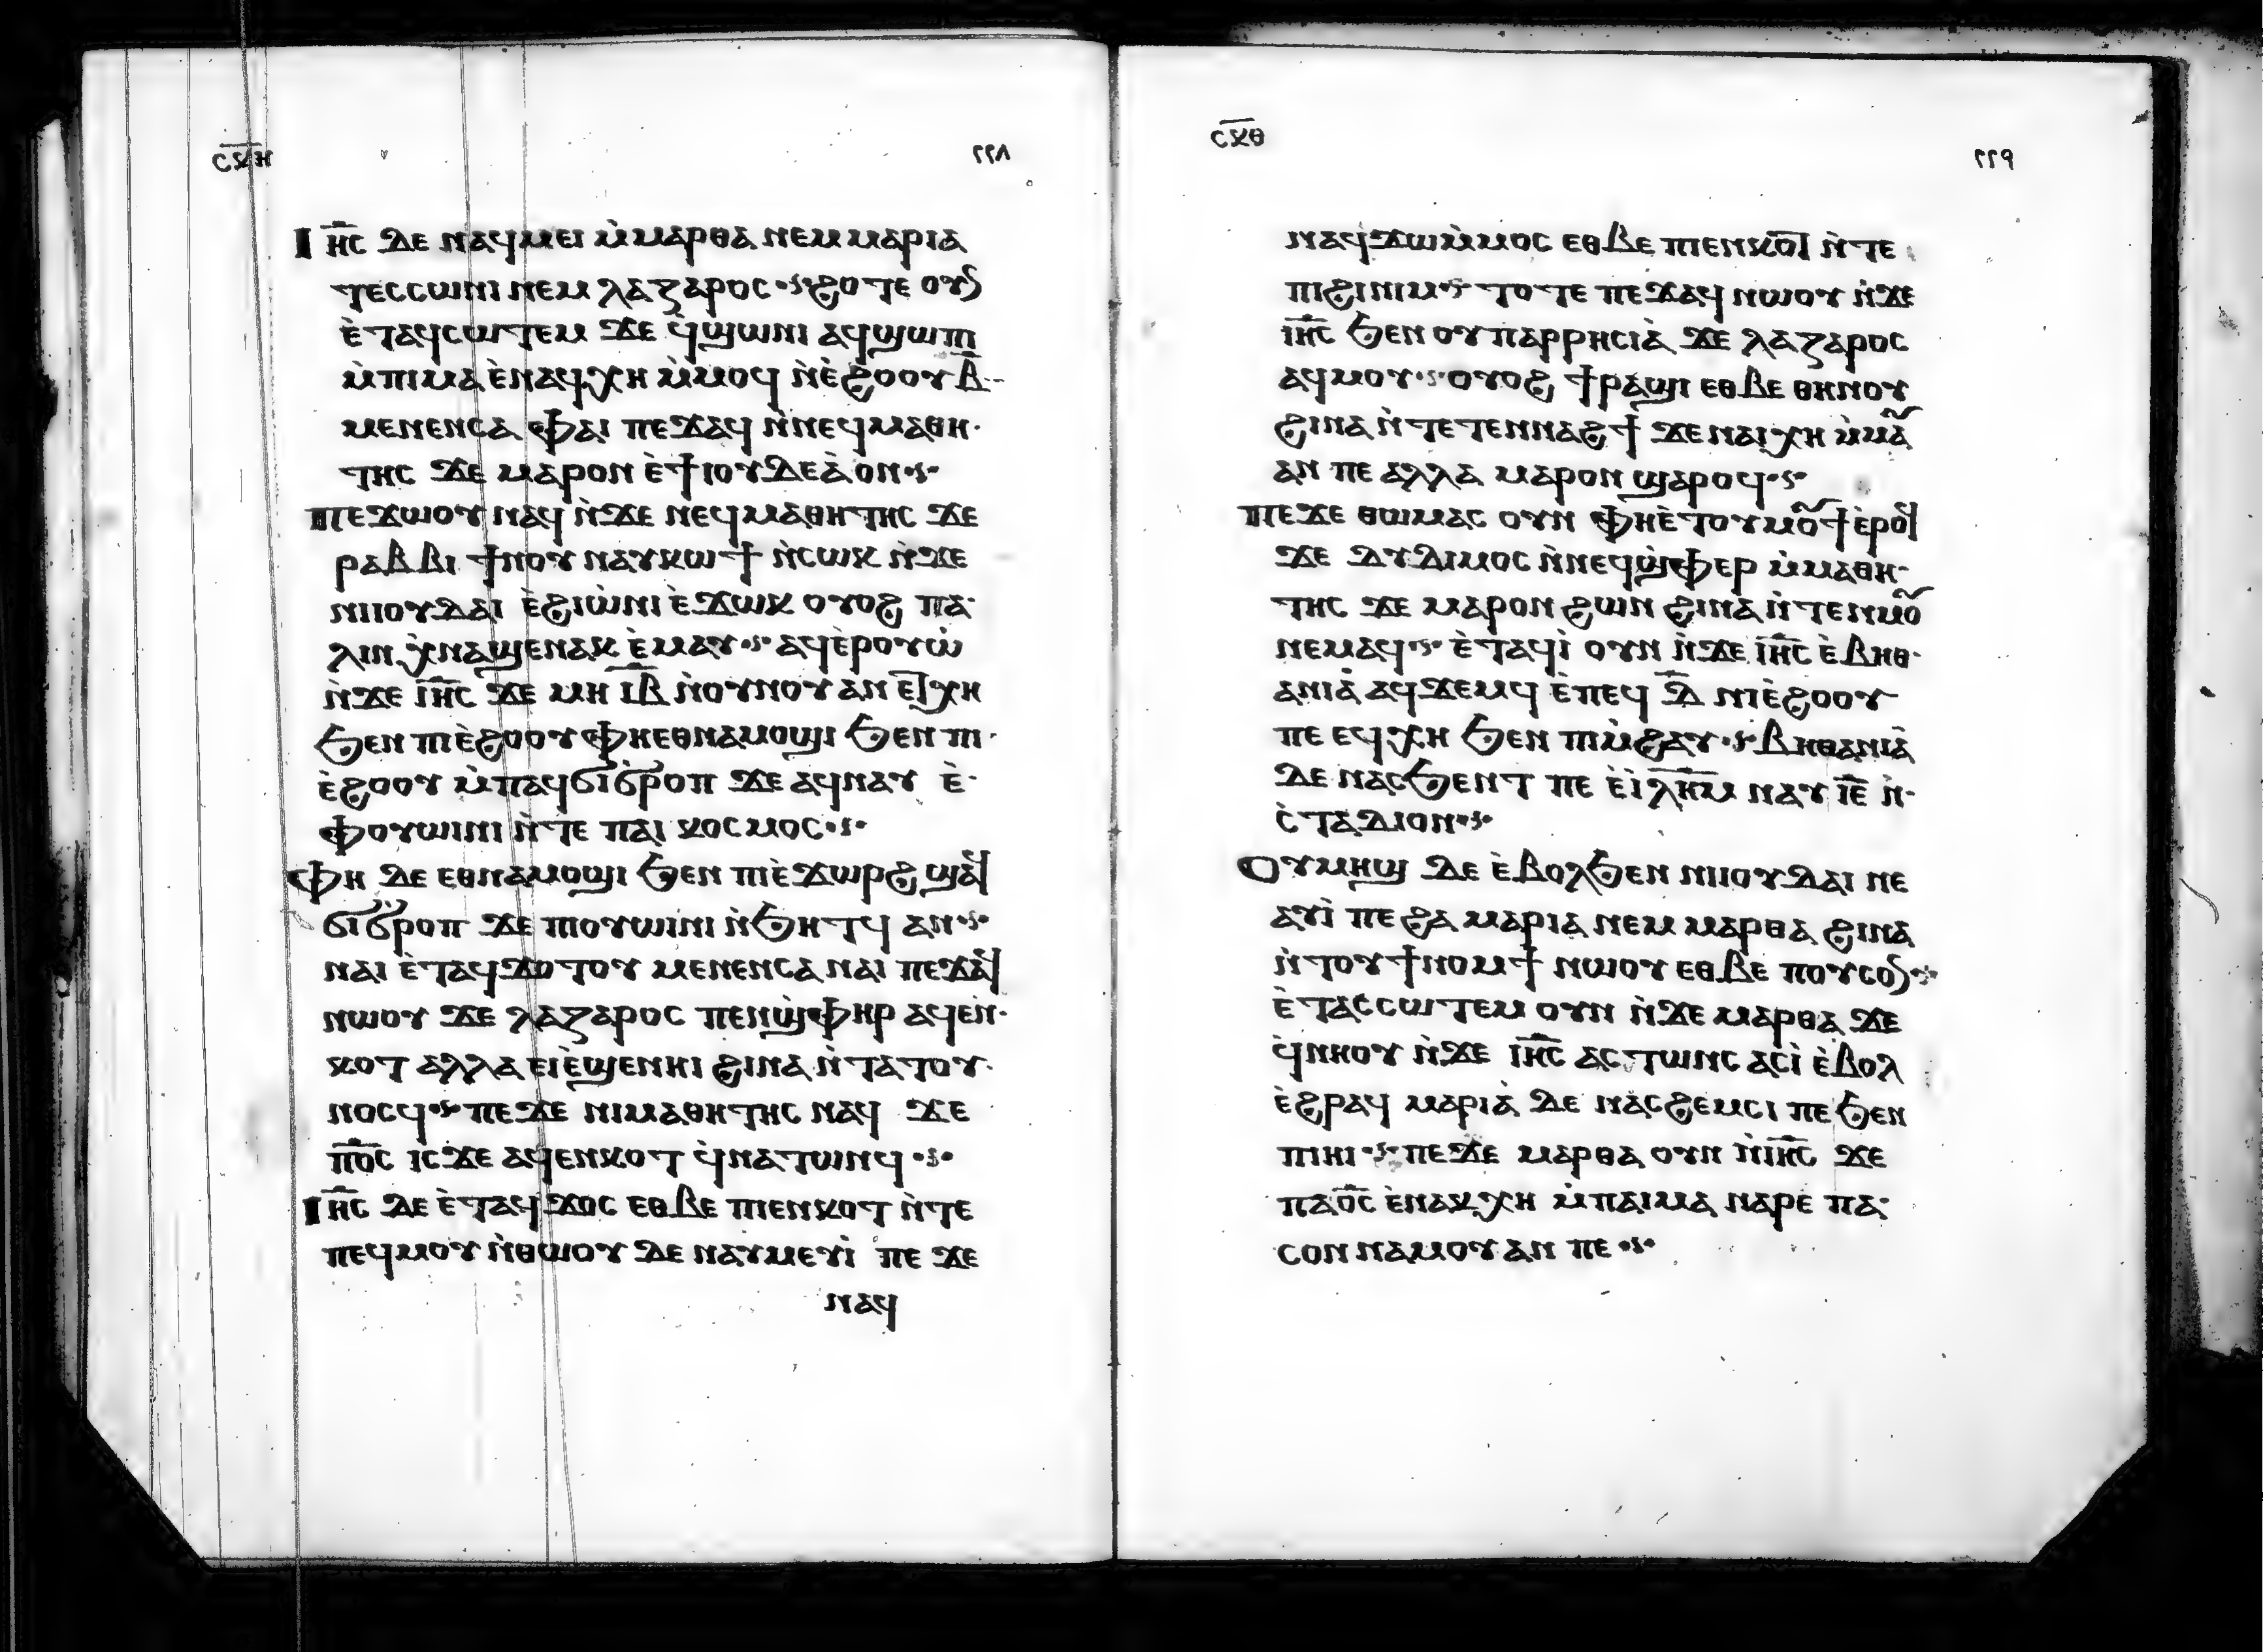 ⲤⲔ̅Ⲏ ٢٢٨
Ⲓⲏ̅ⲥ ⲇⲉ ⲛⲁϥⲙⲉⲓ ⲙ̀ⲙⲁⲣⲑⲁ ⲛⲉⲙ ⲙⲁⲣⲓⲁ
ⲧⲉⲥⲥⲱⲛⲓ ⲛⲉⲙ ⲗⲁⲍⲁⲣⲟⲥ ϩⲟⲧⲉ ⲟⲩⲛ
ⲉ̀ⲧⲁϥⲥⲱⲧⲉⲙ ϫⲉ ϥ̀ϣⲱⲛⲓ ⲁϥϣⲱⲡⲓ
ⲙ̀ⲡⲓⲙⲁ ⲉ̀ⲛⲁϥⲭⲏ ⲙ̀ⲙⲟϥ ⲛ̀ⲉ̀ϩⲟⲟⲩ ⲃ̅
ⲙⲉⲛⲉⲛⲥⲁ ⲫⲁⲓ ⲡⲉϫⲁϥ ⲛ̀ⲛⲉϥⲙⲁⲑⲏ
ⲧⲏⲥ ϫⲉ ⲙⲁⲣⲟⲛ ⲉ̀ϯⲓⲟⲩⲇⲉⲁ̀ ⲟⲛ
ⲡⲉϫⲱⲟⲩ ⲛⲁϥ ⲛ̀ϫⲉ ⲛⲉϥⲙⲁⲑⲏⲧⲏⲥ ϫⲉ
ⲣⲁⲃⲃⲓ ϯⲛⲟⲩ ⲛⲁⲩⲕⲱϯ ⲛ̀ⲥⲱⲕ ⲛ̀ϫⲉ
ⲛⲓⲓⲟⲩⲇⲁⲓ ⲉ̀ϩⲓⲱ̀ⲛⲓ ⲉ̀ϫⲱⲕ ⲟⲩⲟϩ ⲡⲁ
ⲗⲓⲛ ⲭ̀ⲛⲁϣⲉⲛⲁⲕ ⲉ̀ⲙⲁⲩ ⲁϥⲉ̀ⲣⲟⲩⲱ̀
ⲛ̀ϫⲉ ⲓⲏ̅ⲥ ϫⲉ ⲙⲏ ⲓ̅ⲃ̅ ⲛ̀ⲟⲩⲛⲟⲩ ⲁⲛ ⲉⲧⲭⲏ
ϧⲉⲛ ⲡⲓⲉ̀ϩⲟⲟⲩ ⲫⲏⲉⲑⲛⲁⲙⲟϣⲓ ϧⲉⲛ ⲡⲓ
ⲉ̀ϩⲟⲟⲩ ⲙ̀ⲡⲁϥϭⲓϭⲣⲟⲡ ϫⲉ ⲁϥⲛⲁⲩ ⲉ̀
ⲫⲟⲩⲱⲓⲛⲓ ⲛ̀ⲧⲉ ⲡⲁⲓ ⲕⲟⲥⲙⲟⲥ
ⲫⲏ ⲇⲉ ⲉⲑⲛⲁⲙⲟϣⲓ ϧⲉⲛ ⲡⲓⲉ̀ϫⲱⲣϩ ϣⲁϥ
ϭⲓϭⲣⲟⲡ ϫⲉ ⲡⲓⲟⲩⲱⲓⲛⲓ ⲛ̀ϧⲏⲧϥ ⲁⲛ
ⲛⲁⲓ ⲉ̀ⲧⲁϥϫⲟⲧⲟⲩ ⲙⲉⲛⲉⲛⲥⲁ ⲛⲁⲓ ⲡⲉϫⲁϥ
ⲛⲱⲟⲩ ϫⲉ ⲗⲁⲍⲁⲣⲟⲥ ⲡⲉⲛϣ̀ⲫⲏⲣ ⲁϥⲉⲛ̀
ⲕⲟⲧ ⲁⲗⲗⲁ ⲉⲓⲉ̀ϣⲉⲛⲏⲓ ϩⲓⲛⲁ ⲛ̀ⲧⲁⲧⲟⲩ
ⲛⲟⲥϥ ⲡⲉϫⲉ ⲛⲓⲙⲁⲑⲏⲧⲏⲥ ⲛⲁϥ ϫⲉ
ⲡⲟ̅ⲥ ⲓⲥϫⲉ ⲁϥⲉⲛⲕⲟⲧ ϥ̀ⲛⲁⲧⲱⲛϥ
Ⲓⲏ̅ⲥ ⲇⲉ ⲉ̀ⲧⲁϥϫⲟⲥ ⲉⲑⲃⲉ ⲡⲓⲉⲛⲕⲟⲧ ⲛ̀ⲧⲉ
ⲡⲉϥⲙⲟⲩ ⲛ̀ⲑⲱⲟⲩ ⲇⲉ ⲛⲁⲩⲙⲉⲩⲓ̀ ⲡⲉ ϫⲉ
ⲛⲁϥ
ⲤⲔ̅Ⲑ ٢٢٩
ⲛⲁϥϫⲱⲙ̀ⲙⲟⲥ ⲉⲑⲃⲉ ⲡⲓⲉⲛⲕⲟⲧ ⲛ̀ⲧⲉ
ⲡⲓϩⲓⲛⲓⲙ ⲧⲟⲧⲉ ⲡⲉϫⲁϥ ⲛⲱⲟⲩ ⲛ̀ϫⲉ
ⲓⲏ̅ⲥ ϧⲉⲛ ⲟⲩⲡⲁⲣⲣⲏⲥⲓⲁ̀ ϫⲉ ⲗⲁⲍⲁⲣⲟⲥ
ⲁϥⲙⲟⲩ ⲟⲩⲟϩ ϯⲣⲁϣⲓ ⲉⲑⲃⲉ ⲑⲏⲛⲟⲩ
ϩⲓⲛⲁ ⲛ̀ⲧⲉⲧⲉⲛⲛⲁϩϯ ϫⲉ ⲛⲁⲓⲭⲏ ⲙ̀ⲙⲁⲩ
ⲁⲛ ⲡⲉ ⲁⲗⲗⲁ ⲙⲁⲣⲟⲛ ϣⲁⲣⲟϥ
ⲡⲉϫⲉ ⲑⲱⲙⲁⲥ ⲟⲩⲛ ⲫⲏⲉ̀ⲧⲟⲩⲙⲟⲩϯ ⲉ̀ⲣⲟϥ
ϫⲉ ⲇⲩⲇⲓⲙⲟⲥ ⲛ̀ⲛⲉϥϣ̀ⲫⲉⲣ ⲙ̀ⲙⲁⲑⲏ
ⲧⲏⲥ ϫⲉ ⲙⲁⲣⲟⲛ ϩⲱⲛ ϩⲓⲛⲁ ⲛ̀ⲧⲉⲛⲙⲟⲩ
ⲛⲉⲙⲁϥ ⲉ̀ⲧⲁϥⲓ̀ ⲟⲩⲛ ⲛ̀ϫⲉ ⲓⲏ̅ⲥ ⲉ̀ⲃⲏⲑ
ⲁⲛⲓⲁ̀ ⲁϥϫⲉⲙϥ ⲉ̀ⲡⲉϥ ⲇ̅ ⲛⲓⲉ̀ϩⲟⲟⲩ
ⲡⲉ ⲉϥⲭⲏ ϧⲉⲛ ⲡⲓⲙ̀ϩⲁⲩ ⲃⲏⲑⲁⲛⲓⲁ̀
ⲇⲉ ⲛⲁⲥϧⲉⲛⲧ ⲡⲉ ⲉ̀ⲓ̀ⲗⲏ̅ⲙ ⲛⲁⲩ ⲓ̅ⲉ̅ ⲛ̀
ⲥ̀ⲧⲁⲇⲓⲟⲛ
ⲟⲩⲙⲏϣ ⲇⲉ ⲉ̀ⲃⲟⲗϧⲉⲛ ⲛⲓⲓⲟⲩⲇⲁⲓ ⲛⲉ
ⲁⲩⲓ̀ ⲡⲉ ϩⲁ ⲙⲁⲣⲓⲁ ⲛⲉⲙ ⲙⲁⲣⲑⲁ ϩⲓⲛⲁ
ⲛ̀ⲧⲟⲩϯⲛⲟⲙϯ ⲛⲱⲟⲩ ⲉⲑⲃⲉ ⲡⲟⲩⲥⲟⲛ
ⲉ̀ⲧⲁⲥⲥⲱⲧⲉⲙ ⲟⲩⲛ ⲛ̀ϫⲉ ⲙⲁⲣⲑⲁ ϫⲉ
ϥ̀ⲛⲏⲟⲩ ⲛ̀ϫⲉ ⲓⲏ̅ⲥ ⲁⲥⲧⲱⲛⲥ ⲁⲥⲓ̀ ⲉ̀ⲃⲟⲗ
ⲉ̀ϩⲣⲁϥ ⲙⲁⲣⲓⲁ̀ ⲇⲉ ⲛⲁⲥϩⲉⲙⲥⲓ ⲡⲉ ϧⲉⲛ
ⲡⲓⲏⲓ ⲡⲉϫⲉ ⲙⲁⲣⲑⲁ ⲟⲩⲛ ⲛ̀ⲓⲏ̅ⲥ ϫⲉ
ⲡⲁⲟ̅ⲥ ⲉ̀ⲛⲁⲕⲭⲏ ⲙ̀ⲡⲁⲓⲙⲁ ⲛⲁⲣⲉ ⲡⲁ
ⲥⲟⲛ ⲛⲁⲙⲟⲩ ⲁⲛ ⲡⲉ